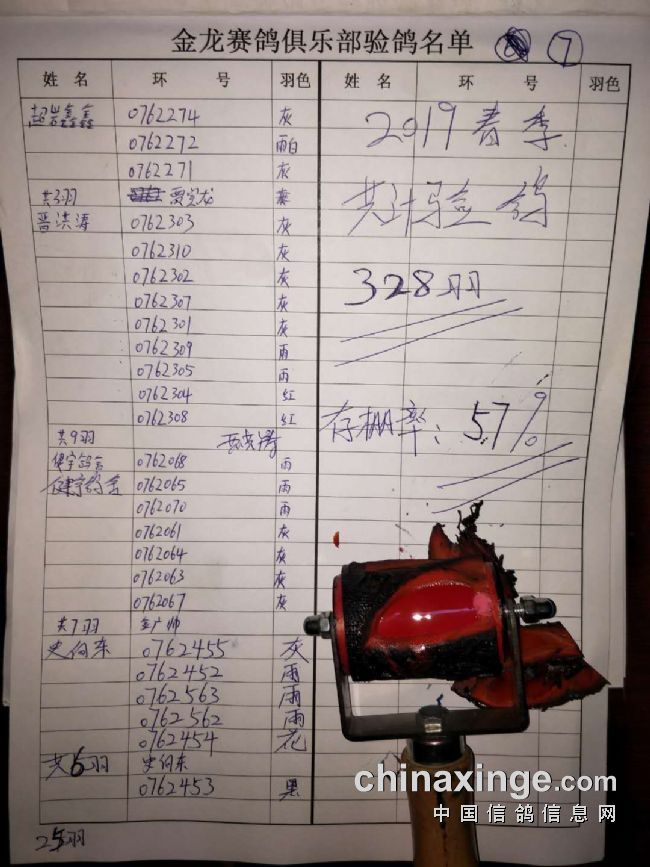 金龙赛鸽俱乐部验鸽名单 7
姓名 环号 羽色 姓名 环号 羽色
超岩鑫鑫 0762274 灰
0762272 雨白
0762271 灰
共3羽
晋洪涛 0762303 灰
0762310 灰
0762302 灰
0762307 灰
0762301 灰
0762309 雨
0762305 雨
0762304 红
0762308 红
共9羽
健宇鸽舍 0762068 雨
健宇鸽舍 0762065 雨
0762070 雨
0762061 灰
0762064 灰
0762063 灰
0762067 灰
共7羽
史向东 0762455 灰
0762452 雨
0762563 雨
0762562 雨
0762454 花
共6羽 史向东
0762453 黑
25羽
2019 春季
共计验鸽
328羽
存棚率: 57%
chinaxinge.com
中国信鸽信息网